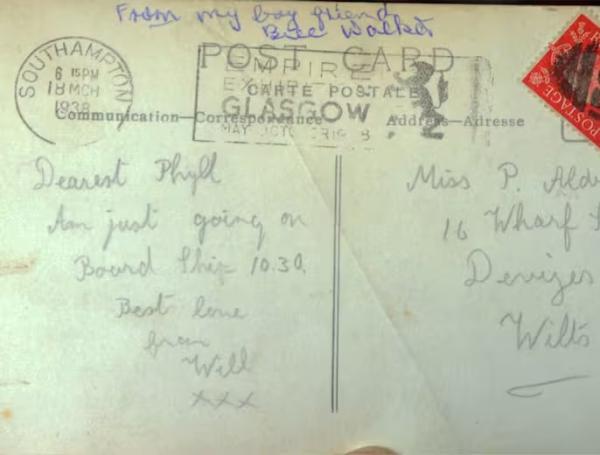 From my boy friend
Bill Walker
POST CARD
SOUTHAMPTON
6 15 PM
18 MCH
1938
EMPIRE
CARTE POSTALE
GLASGOW
MAY OCT 1938
Communication—Correspondence
Address—Adresse
POSTAGE
Dearest Phyll
Am just going on
Board Ship 10.30.
Best love
from
Will
xxx
Miss P.
16 Wharf
Devizes
Wilts